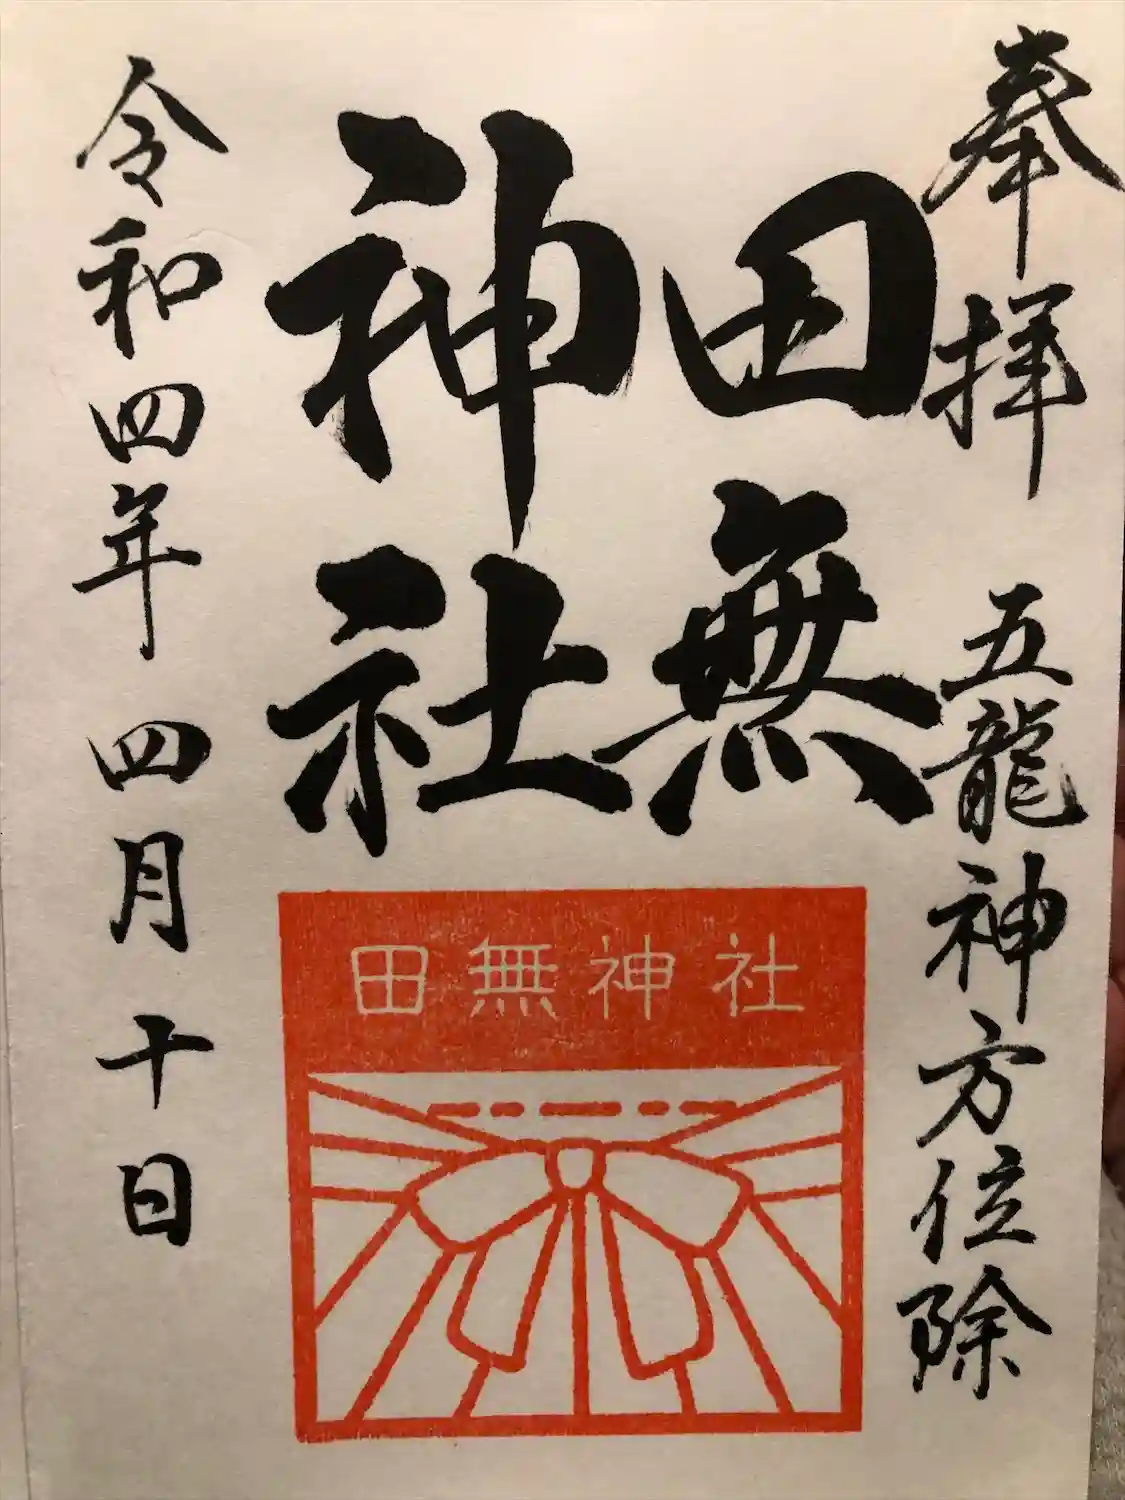 奉拝 五龍神方位除
田無
神社
田無神社
令和四年 四月十日